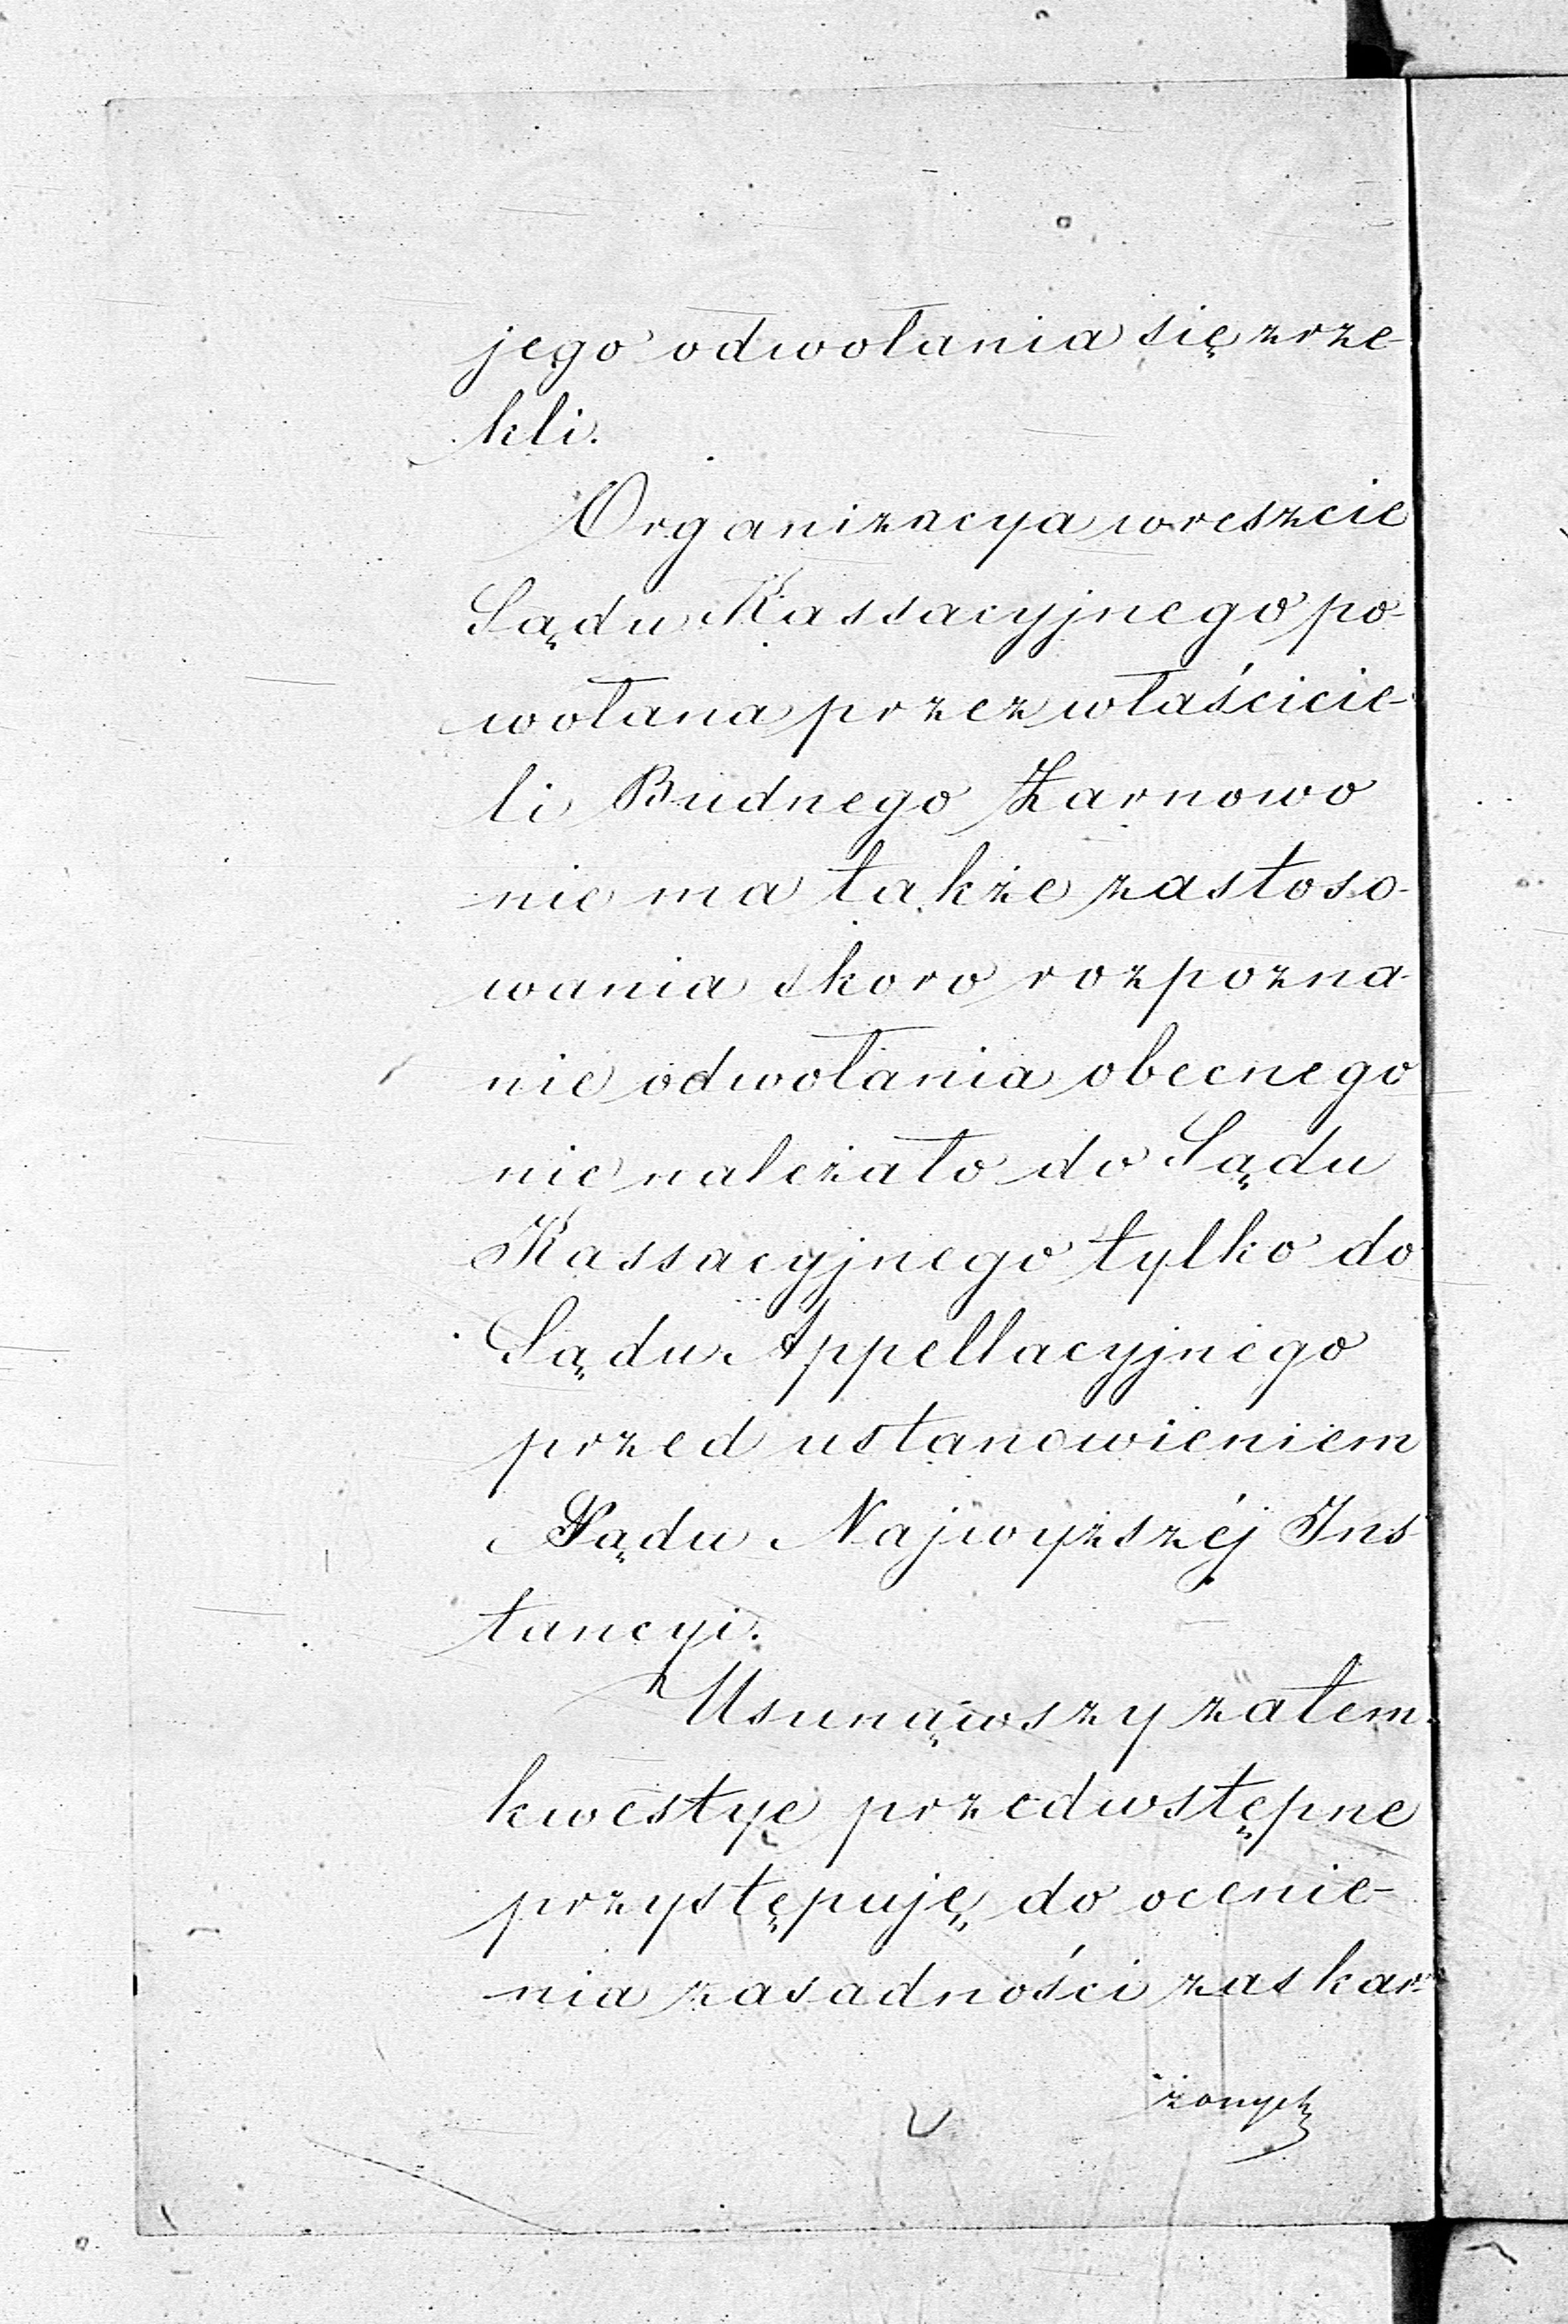 jego odwołania się zrze-
kli.
Organizacya wreszcie
Sądu Kassacyjnego po-
wołana przez właścicie-
li Budnego Żarnowo
nie ma także zastoso-
wania skoro rozpozna-
nie odwołania obecnego
nie należało do Sądu
Kassacyjnego tylko do
Sądu Appellacyjnego
przed ustanowieniem
Sądu Najwyższéj Ins
tancyi.
Usunąwszy zatem
kwestye przedwstępne
przystępuję do ocenie-
nia zasadności zaskar-
żonych